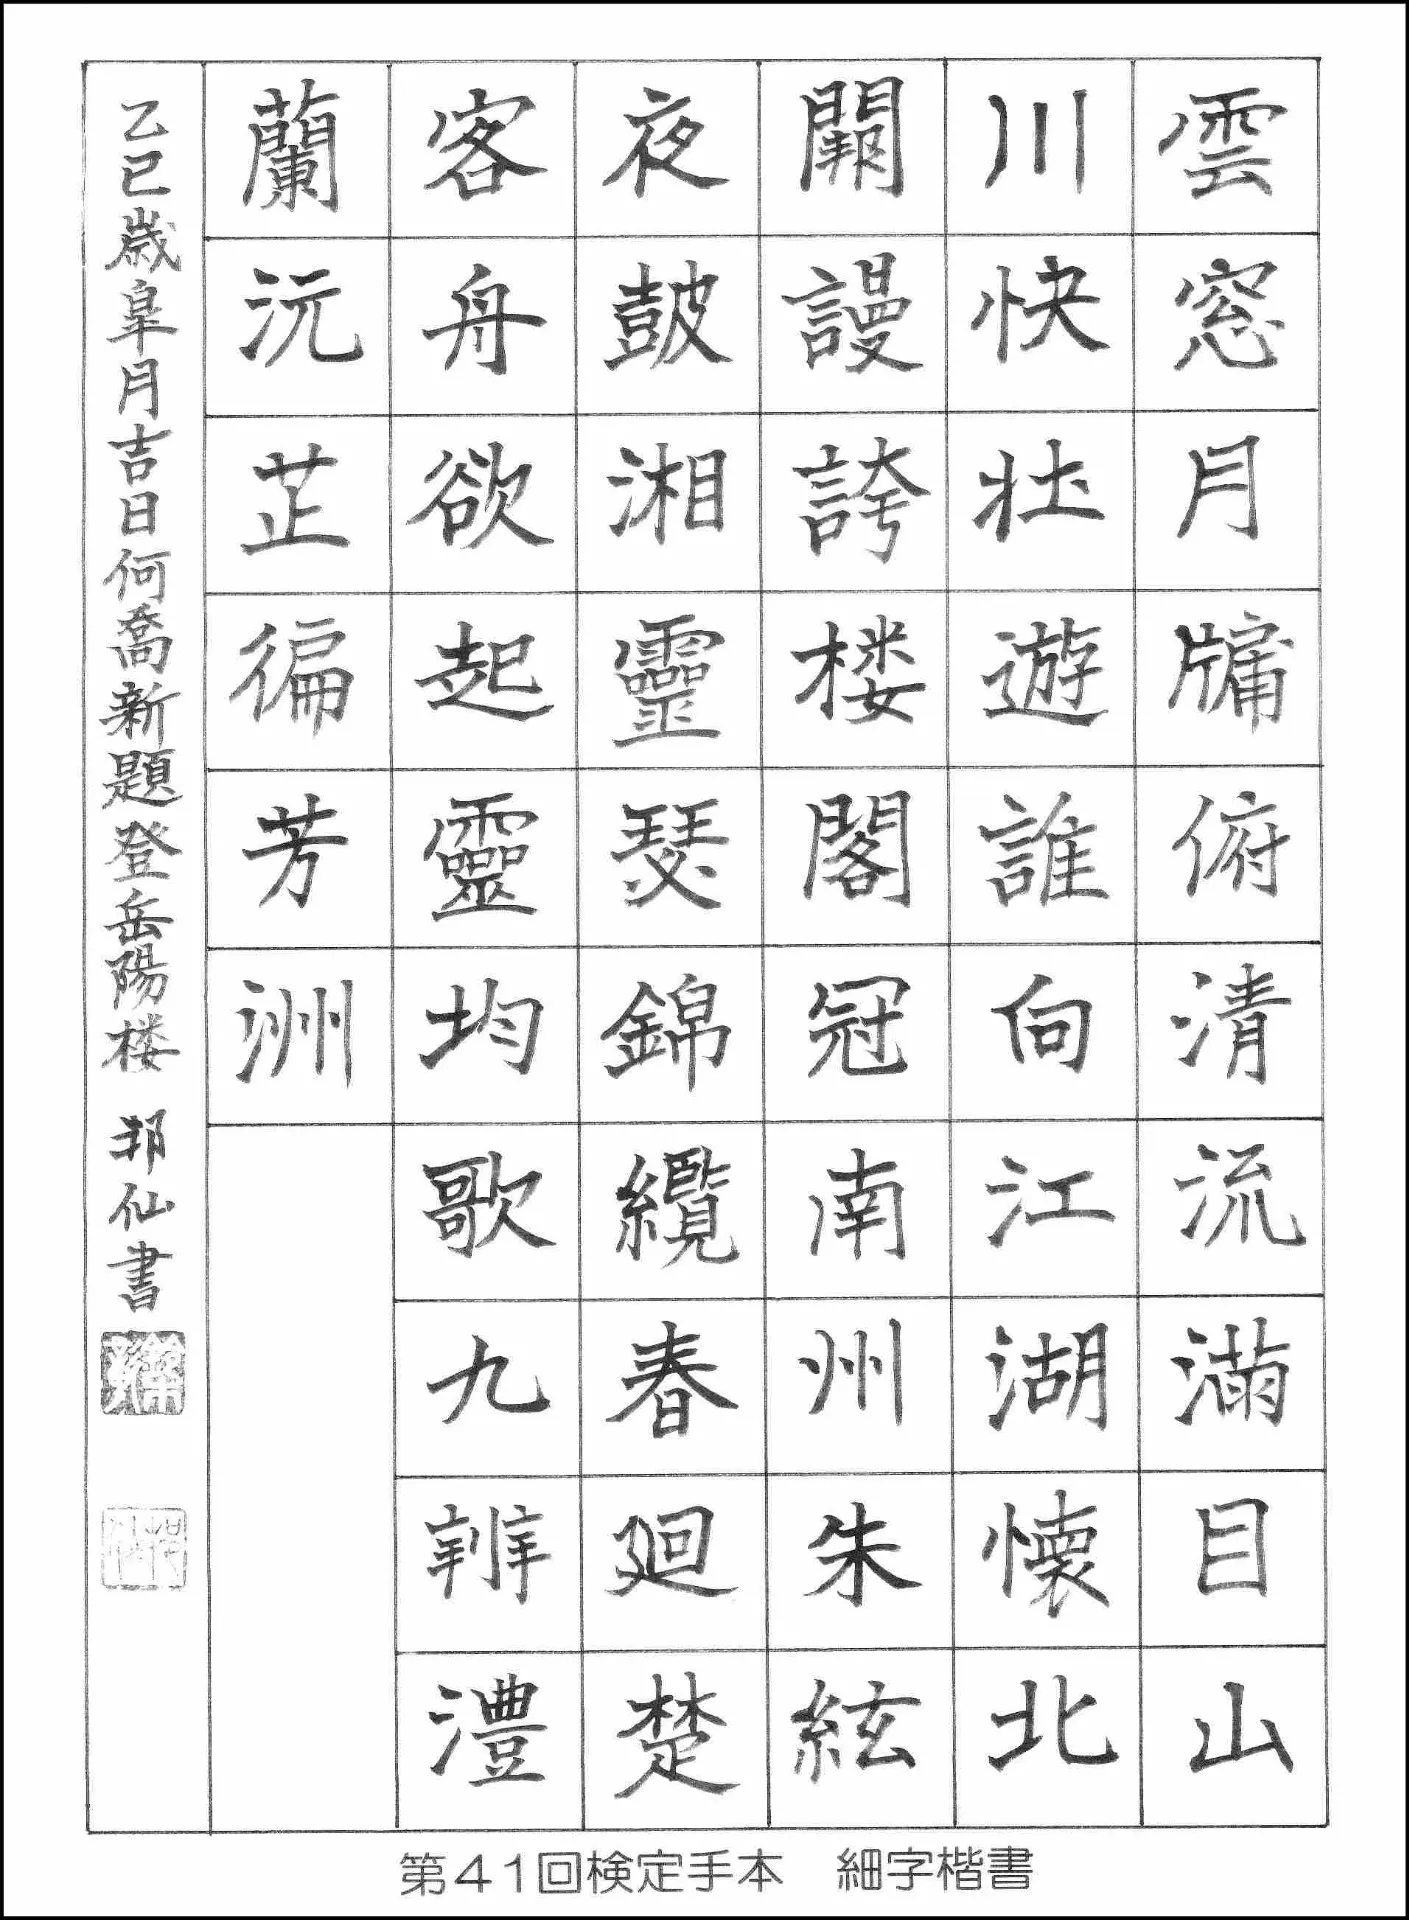 雲窓月牖俯清流滿目山
川快壮遊誰向江湖懐北
闕謾誇楼閣冠南州朱絃
夜鼓湘靈瑟錦纜春廻楚
客舟欲起靈均歌九辨澧
蘭沅芷徧芳洲
乙巳歳皐月吉日何喬新題登岳陽楼 邦仙書
第41回検定手本 細字楷書